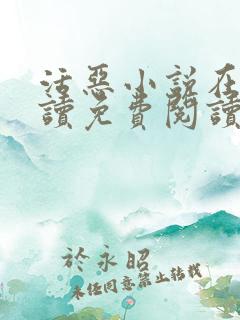 活惡小說在
讀免費閱讀
於永昭
未經同意禁止轉載